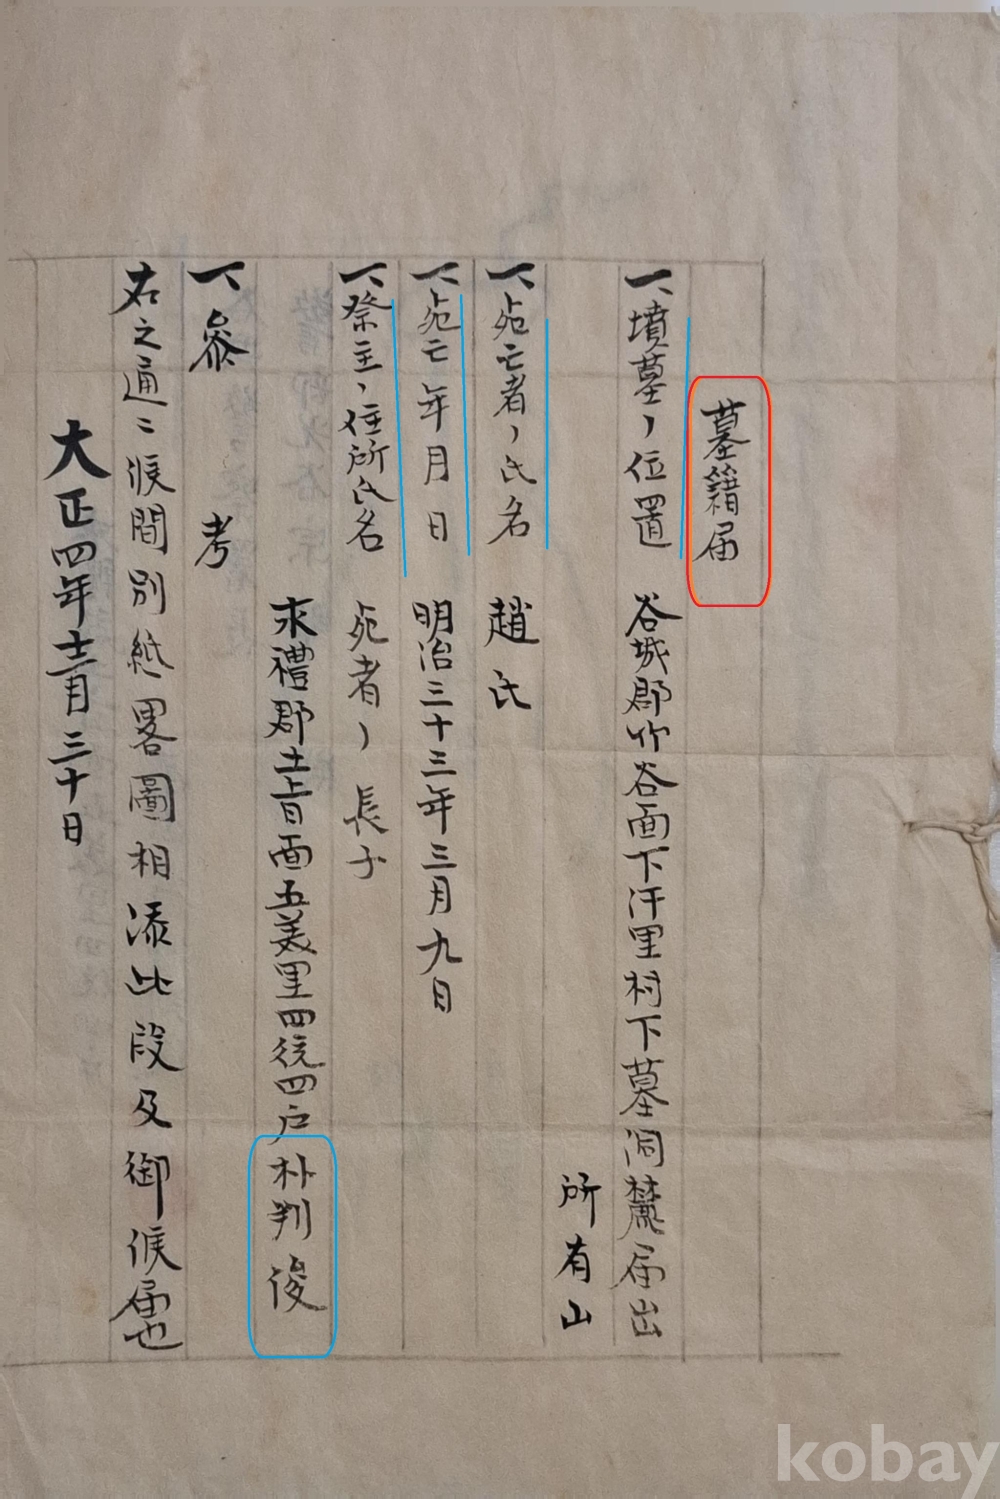 墓籍届
一、墳墓ノ位置 谷城郡竹谷面下汗里村下墓洞麓届出
所有山
一、死亡者ノ氏名 趙氏
一、死亡年月日 明治三十三年三月九日
一、祭主ノ住所氏名 死者ノ長子
求禮郡土旨面五美里四統四戶朴判俊
一、參考
右之通ニ候間別紙畧圖相添此段及御候届也
大正四年十二月三十日
kobay